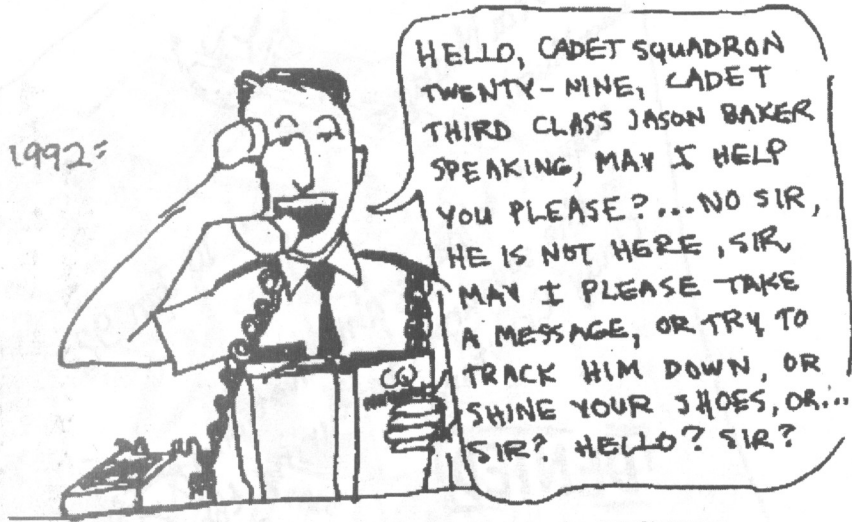 1992:
HELLO, CADET SQUADRON
TWENTY-NINE, CADET
THIRD CLASS JASON BAKER
SPEAKING, MAY I HELP
YOU PLEASE?...NO SIR,
HE IS NOT HERE, SIR,
MAY I PLEASE TAKE
A MESSAGE, OR TRY TO
TRACK HIM DOWN, OR
SHINE YOUR SHOES, OR...
SIR? HELLO? SIR?
CQ